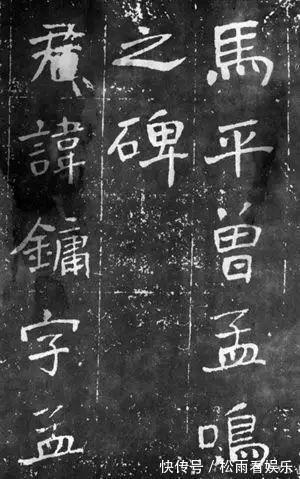 馬平曾孟鳴
之碑
君諱鏞字孟
快传号/松雨看娱乐